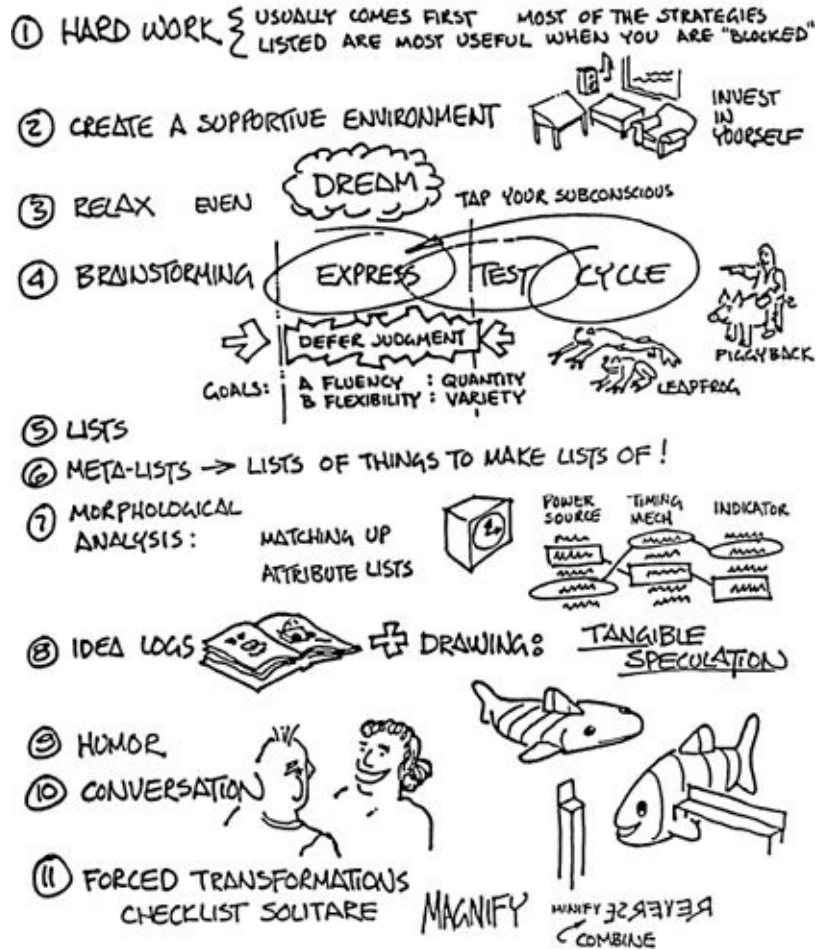 ① HARD WORK { USUALLY COMES FIRST MOST OF THE STRATEGIES
LISTED ARE MOST USEFUL WHEN YOU ARE "BLOCKED"
② CREATE A SUPPORTIVE ENVIRONMENT
INVEST
IN
YOURSELF
③ RELAX EVEN
DREAM
TAP YOUR SUBCONSCIOUS
④ BRAINSTORMING
EXPRESS TEST CYCLE
DEFER JUDGMENT
GOALS: A FLUENCY : QUANTITY
B FLEXIBILITY : VARIETY
LEAPFROG
PIGGYBACK
⑤ LISTS
⑥ META-LISTS → LISTS OF THINGS TO MAKE LISTS OF!
⑦ MORPHOLOGICAL
ANALYSIS:
MATCHING UP
ATTRIBUTE LISTS
POWER
SOURCE
TIMING
MECH
INDICATOR
⑧ IDEA LOGS + DRAWING: TANGIBLE
SPECULATION
⑨ HUMOR
⑩ CONVERSATION
⑪ FORCED TRANSFORMATIONS
CHECKLIST SOLITARE
MAGNIFY
MINIFY REVERSE
COMBINE